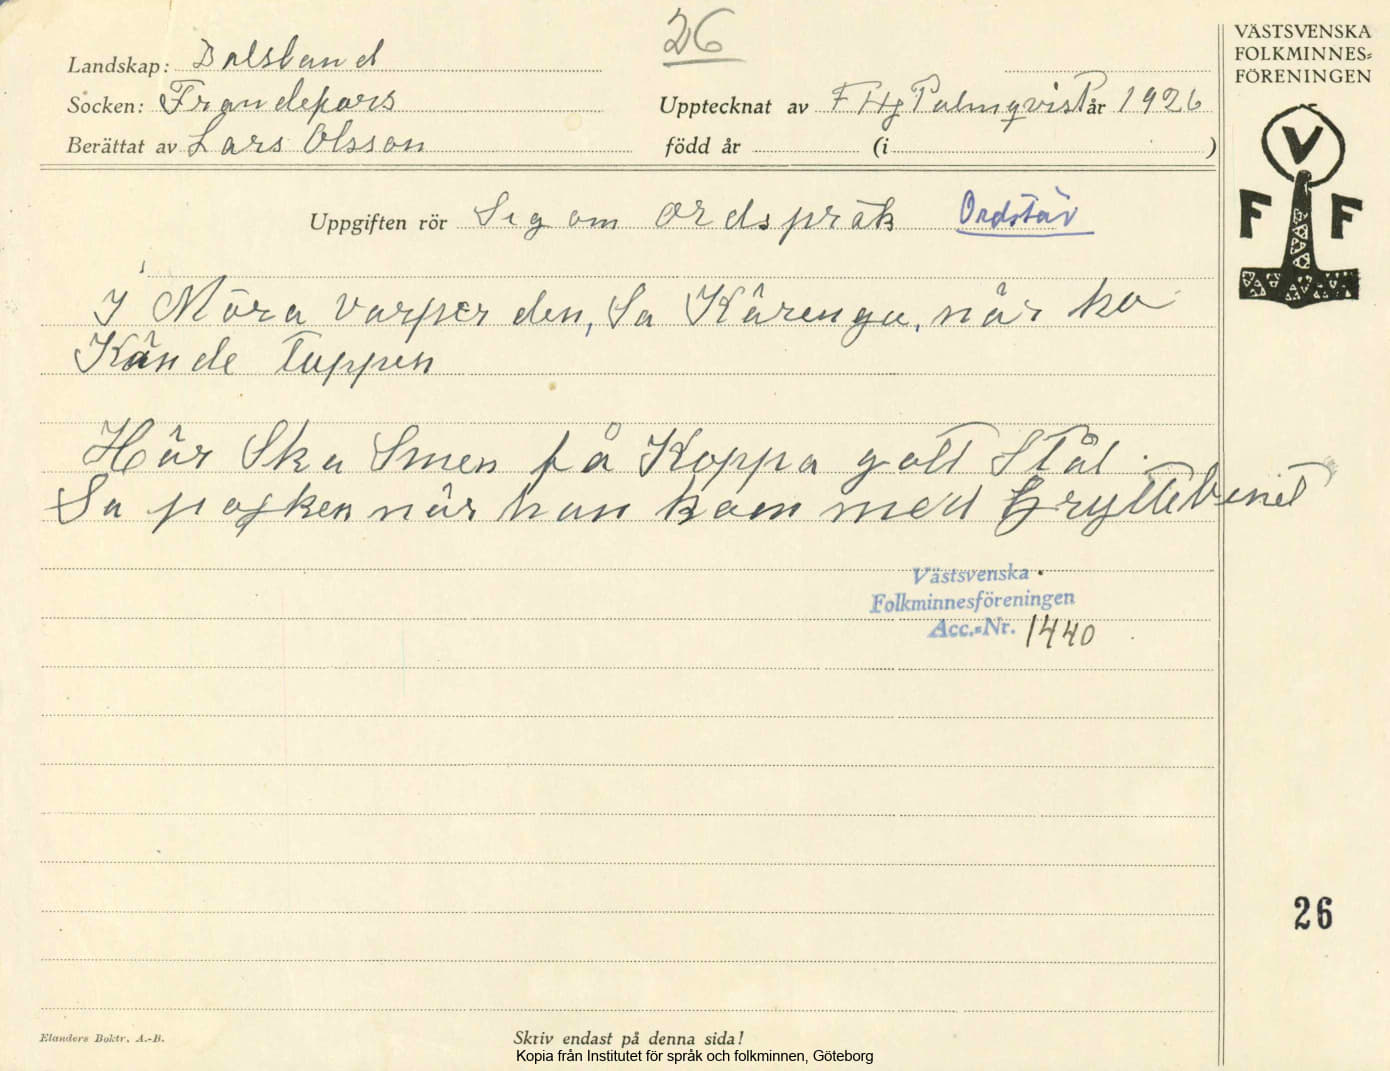 26
VÄSTSVENSKA
FOLKMINNES=
FÖRENINGEN
Landskap: Dalsland
Socken: Frändefors
Upptecknat av F Hg Palmqvist år 1926
Berättat av Lars Olsson
född år (i )
V
F F
Uppgiften rör Seg om ordspråk Ordstäv
I Möra varper den, Sa Käringa, när ho
Kände tuppen
Här Ska Smen få Koppa gott Stål.
Sa pojken när han kom med Gryttebenet
Västsvenska
Folkminnesföreningen
Acc.=Nr. 1440
26
Elanders Boktr. A.-B.
Skriv endast på denna sida!
Kopia från Institutet för språk och folkminnen, Göteborg